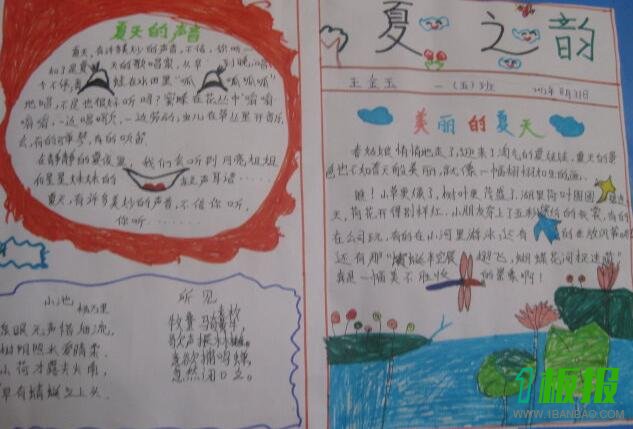 夏天的声音
夏天,有许多美妙的声音,不信,你听
天的歌唱家,从早到晚,唱
个不停,青蛙在水田里“呱呱呱呱”
地唱,不是也很好听吗?蜜蜂在花丛中“嗡嗡
嗡嗡,一边唱歌,一边劳动;虫儿在草丛里开音乐
会,有的弹琴,有的吹笛
在静静的夏夜里,我们会听到月亮姐姐
和星星妹妹的
夏天,有许多美妙的声音,不信你听,
你听……
小池
杨万里
泉眼无声惜细流,
树阴照水爱晴柔.
小荷才露尖尖角,
早有蜻蜓立上头.
所见
牧童骑黄牛
歌声振林樾.
意欲捕鸣蝉,
忽然闭口立.
夏之韵
王金玉 一(五)班
美丽的夏天
春姑娘悄悄地走了,迎来了淘气的夏娃娃,夏天的景
色也不如春天般的美丽,就像一幅栩栩如生的画.
瞧!小草更绿了,树叶更茂盛了,湖里荷叶圆圆
天,荷花开得别样红,小朋友穿上了五彩缤纷的衣裳,有的
在公园玩,有的在小河里游泳,还有的在放风筝吧
还有那“蜻蜓半空展翅飞,蝴蝶花间捉迷藏”
真是一幅美不胜收的景象啊!
1板报
WWW.1BANBAO.COM